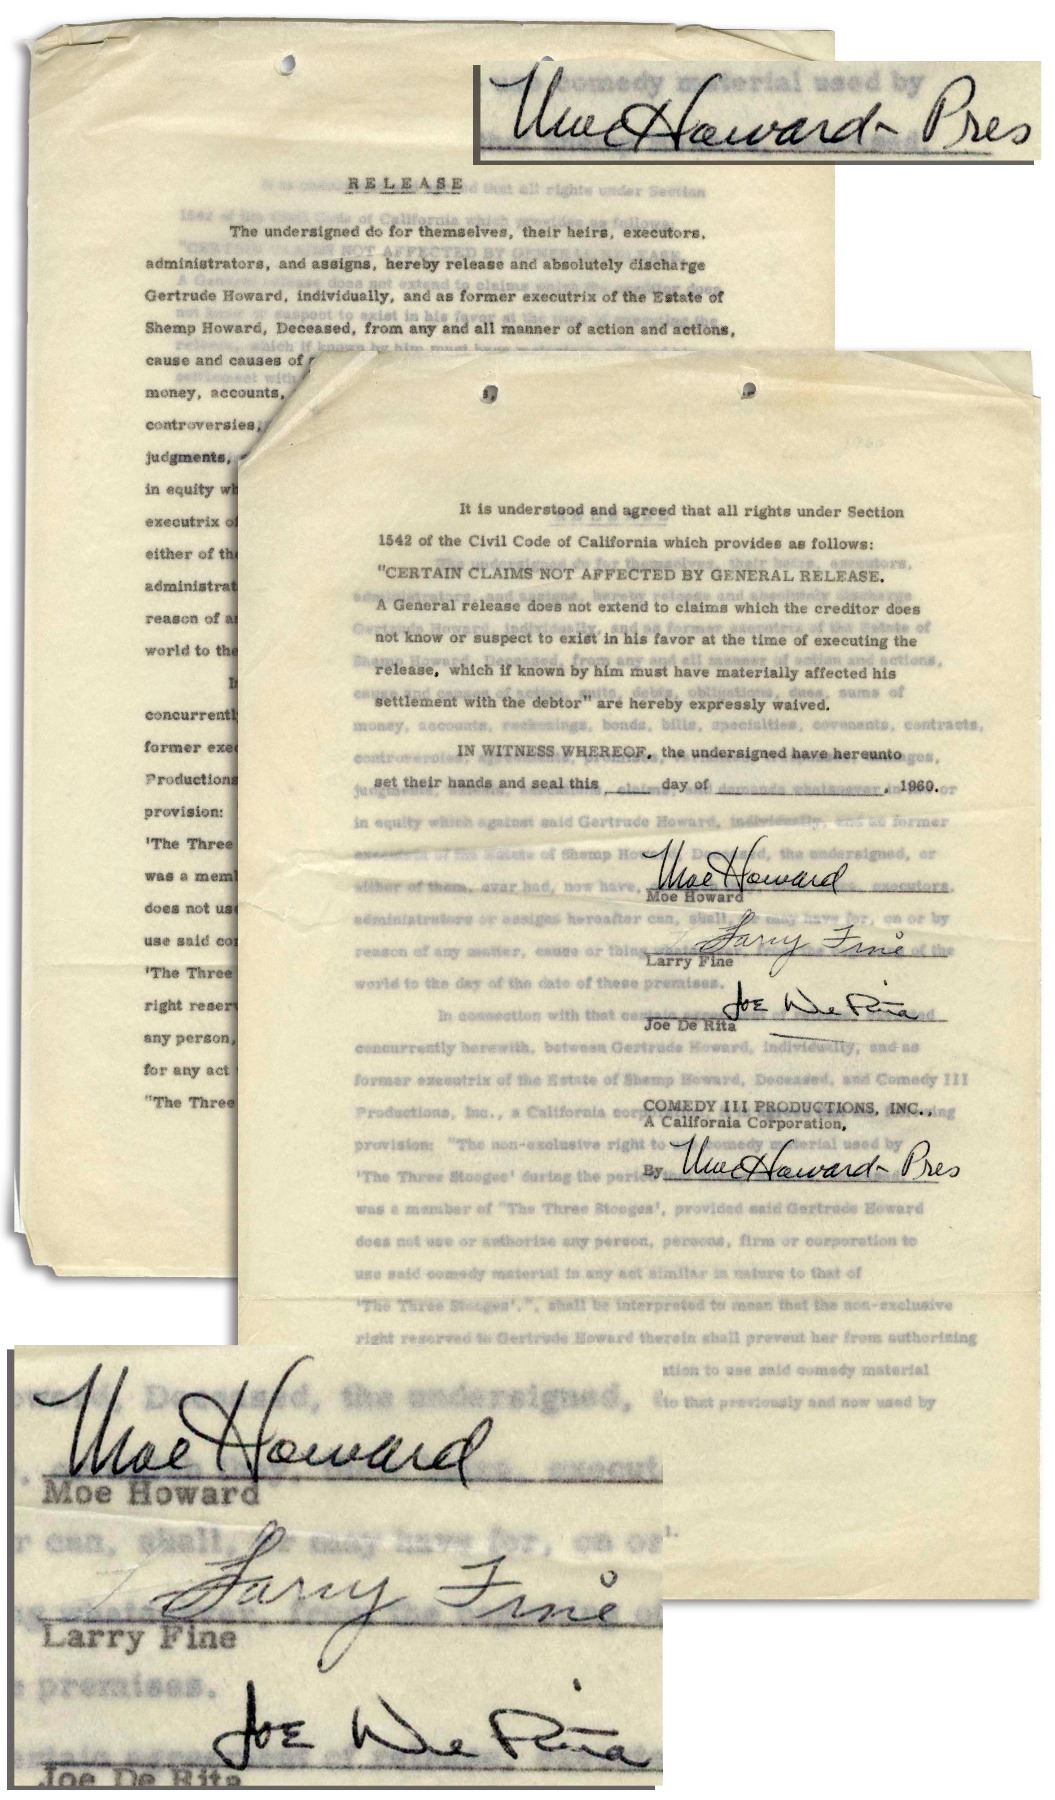 Moe Howard - Pres
RELEASE
The undersigned do for themselves, their heirs, executors,
administrators, and assigns, hereby release and absolutely discharge
Gertrude Howard, individually, and as former executrix of the Estate of
Shemp Howard, Deceased, from any and all manner of action and actions,
cause and causes of
money, accounts,
controversies,
judgments,
in equity wh
executrix of
either of the
administrat
reason of a
world to the
In
concurrentl
former exe
Productions
provision:
'The Three
was a mem
does not us
use said co
'The Three
right reser
any person,
for any act
"The Three
It is understood and agreed that all rights under Section
1542 of the Civil Code of California which provides as follows:
"CERTAIN CLAIMS NOT AFFECTED BY GENERAL RELEASE.
A General release does not extend to claims which the creditor does
not know or suspect to exist in his favor at the time of executing the
release, which if known by him must have materially affected his
settlement with the debtor" are hereby expressly waived.
IN WITNESS WHEREOF, the undersigned have hereunto
set their hands and seal this ____ day of ____, 1960.
Moe Howard
Moe Howard
Larry Fine
Larry Fine
Joe De Rita
Joe De Rita
COMEDY III PRODUCTIONS, INC.,
A California Corporation,
By Moe Howard - Pres
Moe Howard
Moe Howard
Larry Fine
Larry Fine
Joe De Rita
Joe De Rita